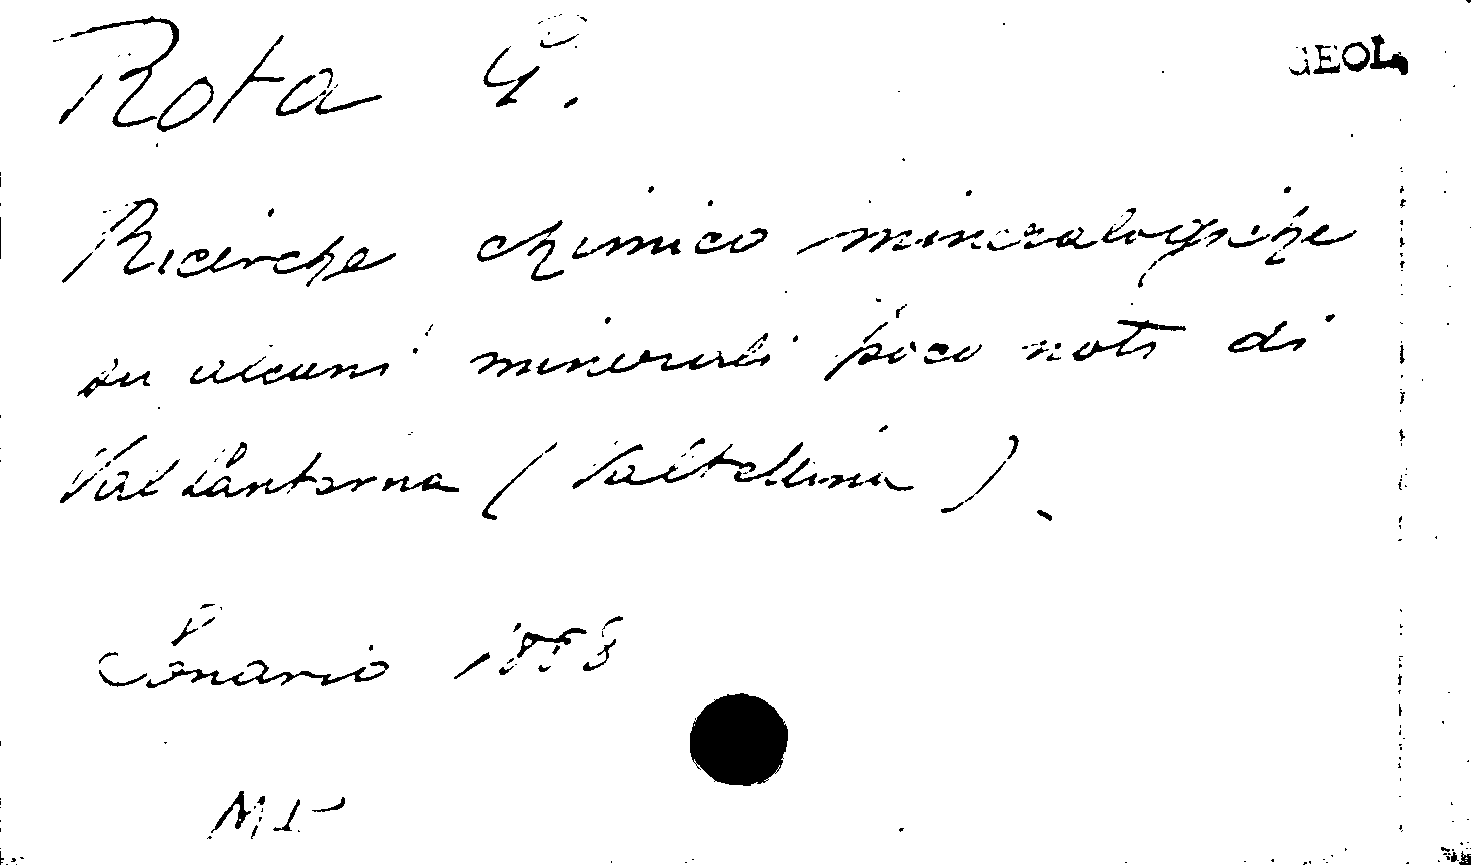 Rota G.
GEOL.
Ricerche chimico mineralogiche
su alcuni minerali poco noti di
Val Lanterna (Valtellina).
1888